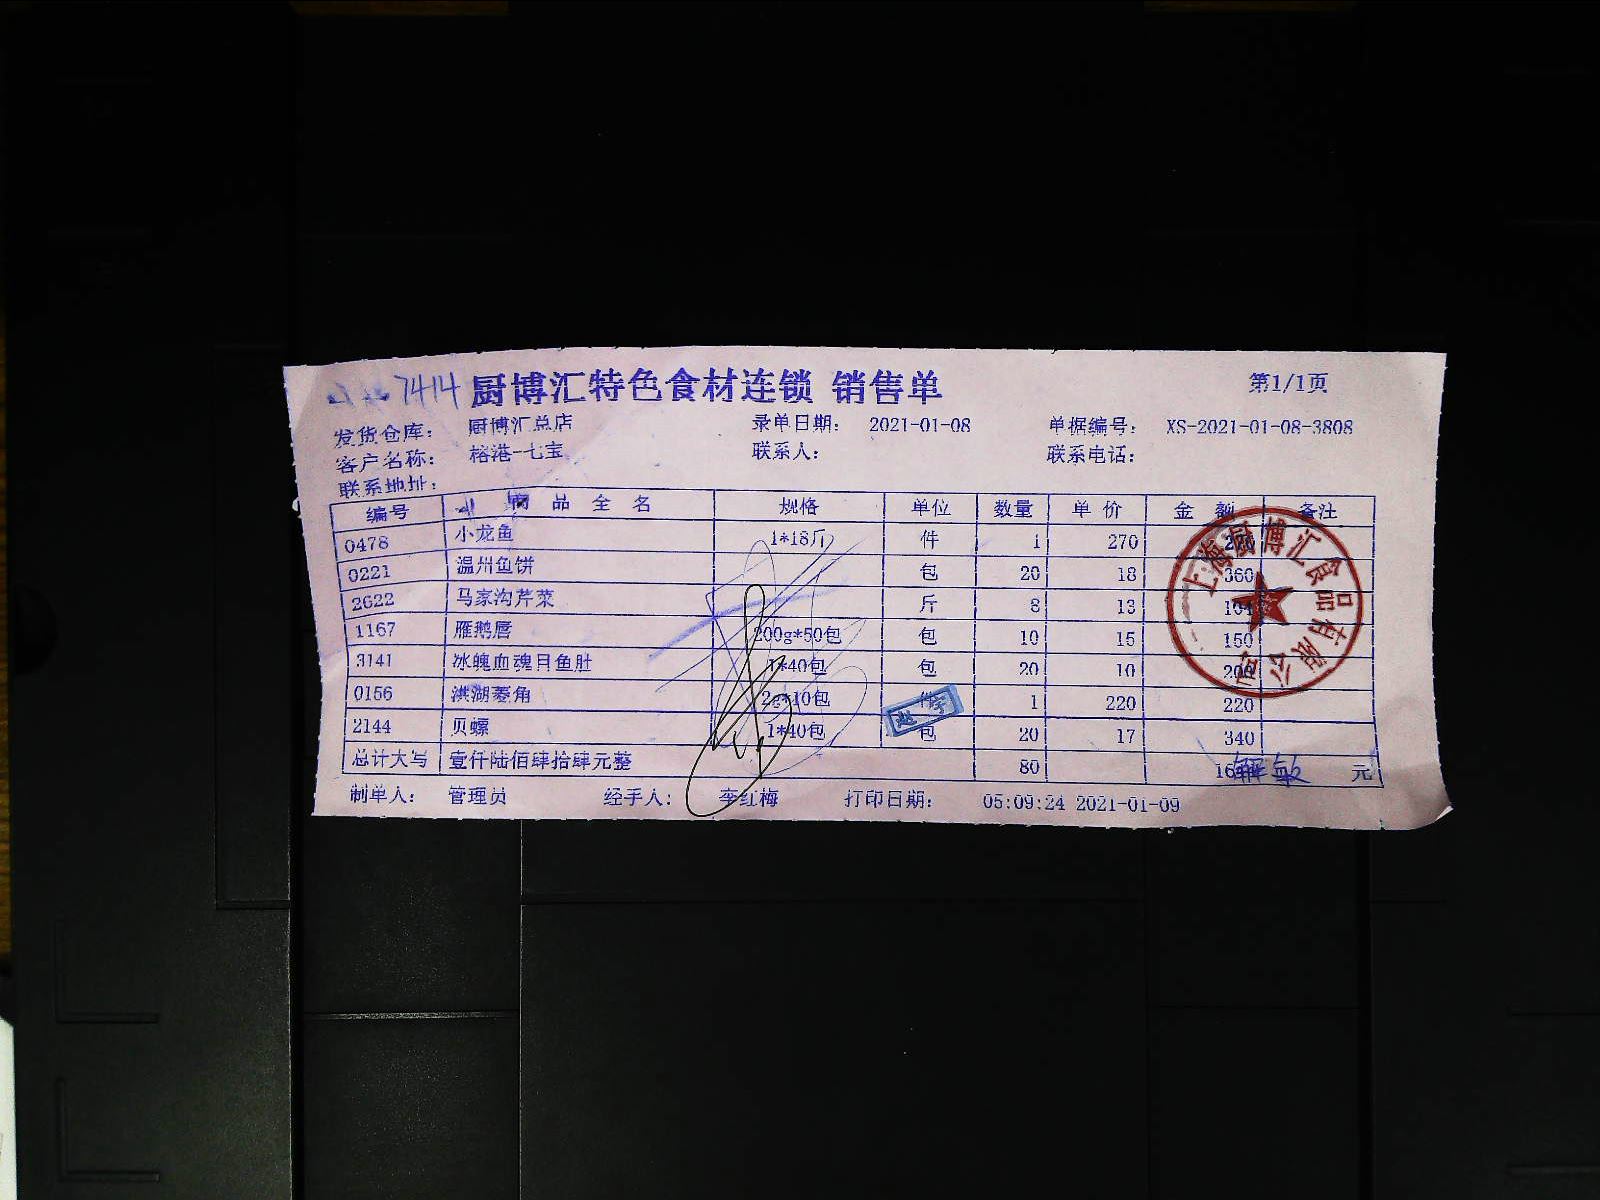 7414 厨博汇特色食材连锁 销售单 第1/1页
发货仓库： 厨博汇总店 录单日期： 2021-01-08 单据编号： XS-2021-01-08-3808
客户名称： 榕港-七宝 联系人： 联系电话：
联系地址：
编号 商品全名 规格 单位 数量 单价 金额 备注
0478 小龙鱼 1*18斤 件 1 270 270
0221 温州鱼饼 包 20 18 360
2622 马家沟芹菜 斤 8 13 104
1167 雁鹅唇 200g*50包 包 10 15 150
3141 冰魄血魂目鱼肚 1*40包 包 20 10 200
0156 洪湖菱角 10包 件 1 220 220
2144 贝螺 1*40包 包 20 17 340
总计大写 壹仟陆佰肆拾肆元整 80 元
制单人： 管理员 经手人： 李红梅 打印日期： 05:09:24 2021-01-09
上海厨博汇食品有限公司